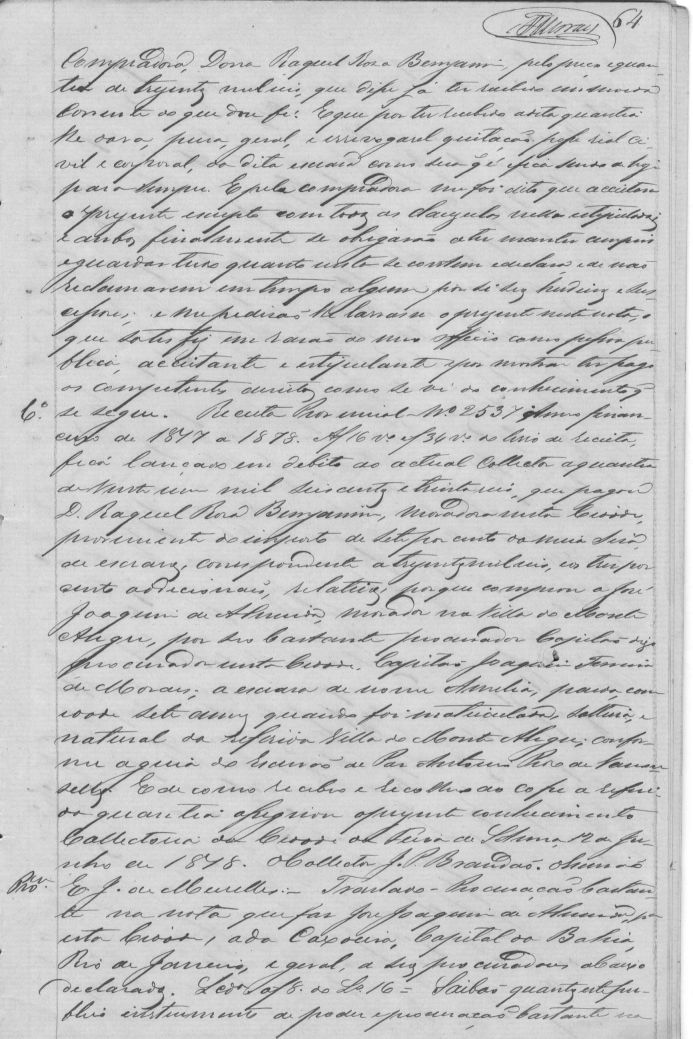 64
Compradora, Dona Raquel Rosa Benjamin, pelo preço e quan-
tia de trezentos mil reis, que disse já ter recebido em moeda
corrente do que dou fé: E que por ter recebido a dita quantia
lhe dava, plena, geral, e irrevogavel quitação, posse real ci-
vil e corporal, da dita escrava como sua q' é e fica sendo de hoje
para sempre. E pela compradora me foi dito que acceitava
o presente escripto com todas as clausulas nella estipuladas
e ambos finalmente se obrigavão a ter manter cumprir
e guardar tudo quanto nesta se contem e declara e de não
reclamarem em tempo algum por si seus herdeiros e suc-
cessores; e me pedirão lhe lavrasse o presente nesta nota, o
que satisfiz em razão do meu officio como pessoa pu-
blica, acceitante e estipulante e por mostrar ter pago
os competentes direitos como se vê do conhecimento q'
6º se segue. Receita Provincial Nº 2537 Anno finan-
ceiro de 1877 a 1878. Af 16 vº e f 34 vº do livro de receita,
fica lançado em debito ao actual Collector a quantia
de vinte um mil seiscentos e trinta reis, que pagou
D. Raquel Rosa Benjamin, moradora nesta Cidade,
proveniente do imposto de sete por cento da meia Siza
de escravos, correspondente a trezentos mil reis, e os tres por
cento addicionais, relativos, porque comprou a José
Joaquim de Almeida, morador na Villa do Monte
Alegre, por seu bastante procurador Capitão digo
procurador nesta Cidade. Capitão Joaquim Ferreira
de Moraes; a escrava de nome Amelia, parda com
idade sete annos quando foi matriculada, solteira, e
natural da referida Villa do Monte Alegre; confor-
me a guia do Escrivão de Paz Antonio Rozo de Vascon-
cellos. E de como recebeu e recolheu ao cofre a referi-
da quantia assignou o presente conhecimento
Collectoria da Cidade da Feira de S. Anna, 12 de Ju-
nho de 1878. O Collector J. P. Brandão. O Escrivão
Procm. E. J. de Meirelles. Traslado - Procuração bastan-
te na nota que faz José Joaquim de Almeida, pa
esta Cidade, a da Caxoeira, Capital da Bahia,
Rio de Janeiro, e geral, a seus procuradores abaixo
declarados. Lº 16 = Saibão quantos este pu-
blico instrumento de poder e procuração bastante na